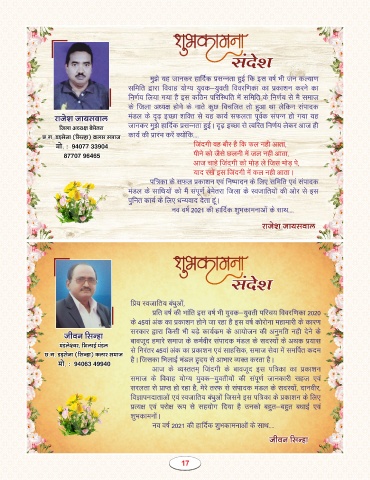 शुभकामना
संदेश
मुझे यह जानकर हार्दिक प्रसन्नता हुई कि इस वर्ष भी जन कल्याण
समिति द्वारा विवाह योग्य युवक–युवती विवरणिका का प्रकाशन करने का
निर्णय लिया गया है इस कठिन परिस्थिति में समिति के निर्णय से मैं समाज
के जिला अध्यक्ष होने के नाते कुछ विचलित तो हुआ था लेकिन संपादक
मंडल के दृढ़ इच्छा शक्ति से यह कार्य सफलता पूर्वक संपन्न हो गया यह
जानकर मुझे हार्दिक प्रसन्नता हुई। दृढ़ इच्छा से त्वरित निर्णय लेकर आज ही
कार्य की प्रारंभ करें क्योंकि...
राजेश जायसवाल
जिला अध्यक्ष बेमेतरा
छ.ग. डड़सेना (सिन्हा) कलार समाज
मो. : 94077 33904
87707 96465
जिंदगी वह बौर है कि कल नहीं आता,
पीने को जैसे छलनी में जल नहीं आता,
आज चाहे जिंदगी को मोड़ ले जिस मोड़ पे,
याद रखें इस जिंदगी में कल नहीं आता।
पत्रिका के सफल प्रकाशन एवं निष्पादन के लिए समिति एवं संपादक
मंडल के साथियों को मैं संपूर्ण बेमेतरा जिला के स्वजातियों की ओर से इस
पुनित कार्य के लिए धन्यवाद देता हूं।
नव वर्ष 2021 की हार्दिक शुभकामनाओं के साथ...
राजेश जायसवाल
शुभकामना
संदेश
प्रिय स्वजातिय बंधुओं,
प्रति वर्ष की भांति इस वर्ष भी युवक–युवती परिचय विवरणिका 2020
के 45वां अंक का प्रकाशन होने जा रहा है इस वर्ष कोरोना महामारी के कारण
सरकार द्वारा किसी भी बड़े कार्यक्रम के आयोजन की अनुमति नहीं देने के
बावजूद हमारे समाज के कर्मवीर संपादक मंडल के सदस्यों के अथक प्रयास
से निरंतर 45वां अंक का प्रकाशन एवं साहसिक, समाज सेवा में समर्पित कदम
है। जिसका भिलाई मंडल हृदय से आभार व्यक्त करता है।
जीवन सिन्हा
मंडलेश्वर, भिलाई मंडल
छ.ग. डड़सेना (सिन्हा) कलार समाज
मो. : 94063 49940
आज के व्यस्ततम् जिंदगी के बावजूद इस पत्रिका का प्रकाशन
समाज के विवाह योग्य युवक–युवतीयों की संपूर्ण जानकारी सहज एवं
सरलता से प्राप्त हो रहा है, मेरे तरफ से संपादक मंडल के सदस्यों, दानवीर,
विज्ञापनदाताओं एवं स्वजातिय बंधुओं जिसने इस पत्रिका के प्रकाशन के लिए
प्रत्यक्ष एवं परोक्ष रूप से सहयोग दिया है उनको बहुत–बहुत बधाई एवं
शुभकामनाएं।
नव वर्ष 2021 की हार्दिक शुभकामनाओं के साथ...
जीवन सिन्हा
17